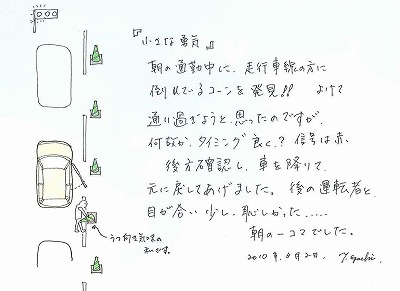 『小さな勇気』
朝の通勤中に、走行車線の方に
倒れているコーンを発見!! よけて
通り過ぎようと思ったのですが、
何故か、タイミング良く？信号は赤、
後方確認し、車を降りて、
元に戻してあげました。後の運転者と、
目が合い少し、恥しかった.....
朝の一コマでした。
2010年.8月2日.
うつ向き気味の
私です。